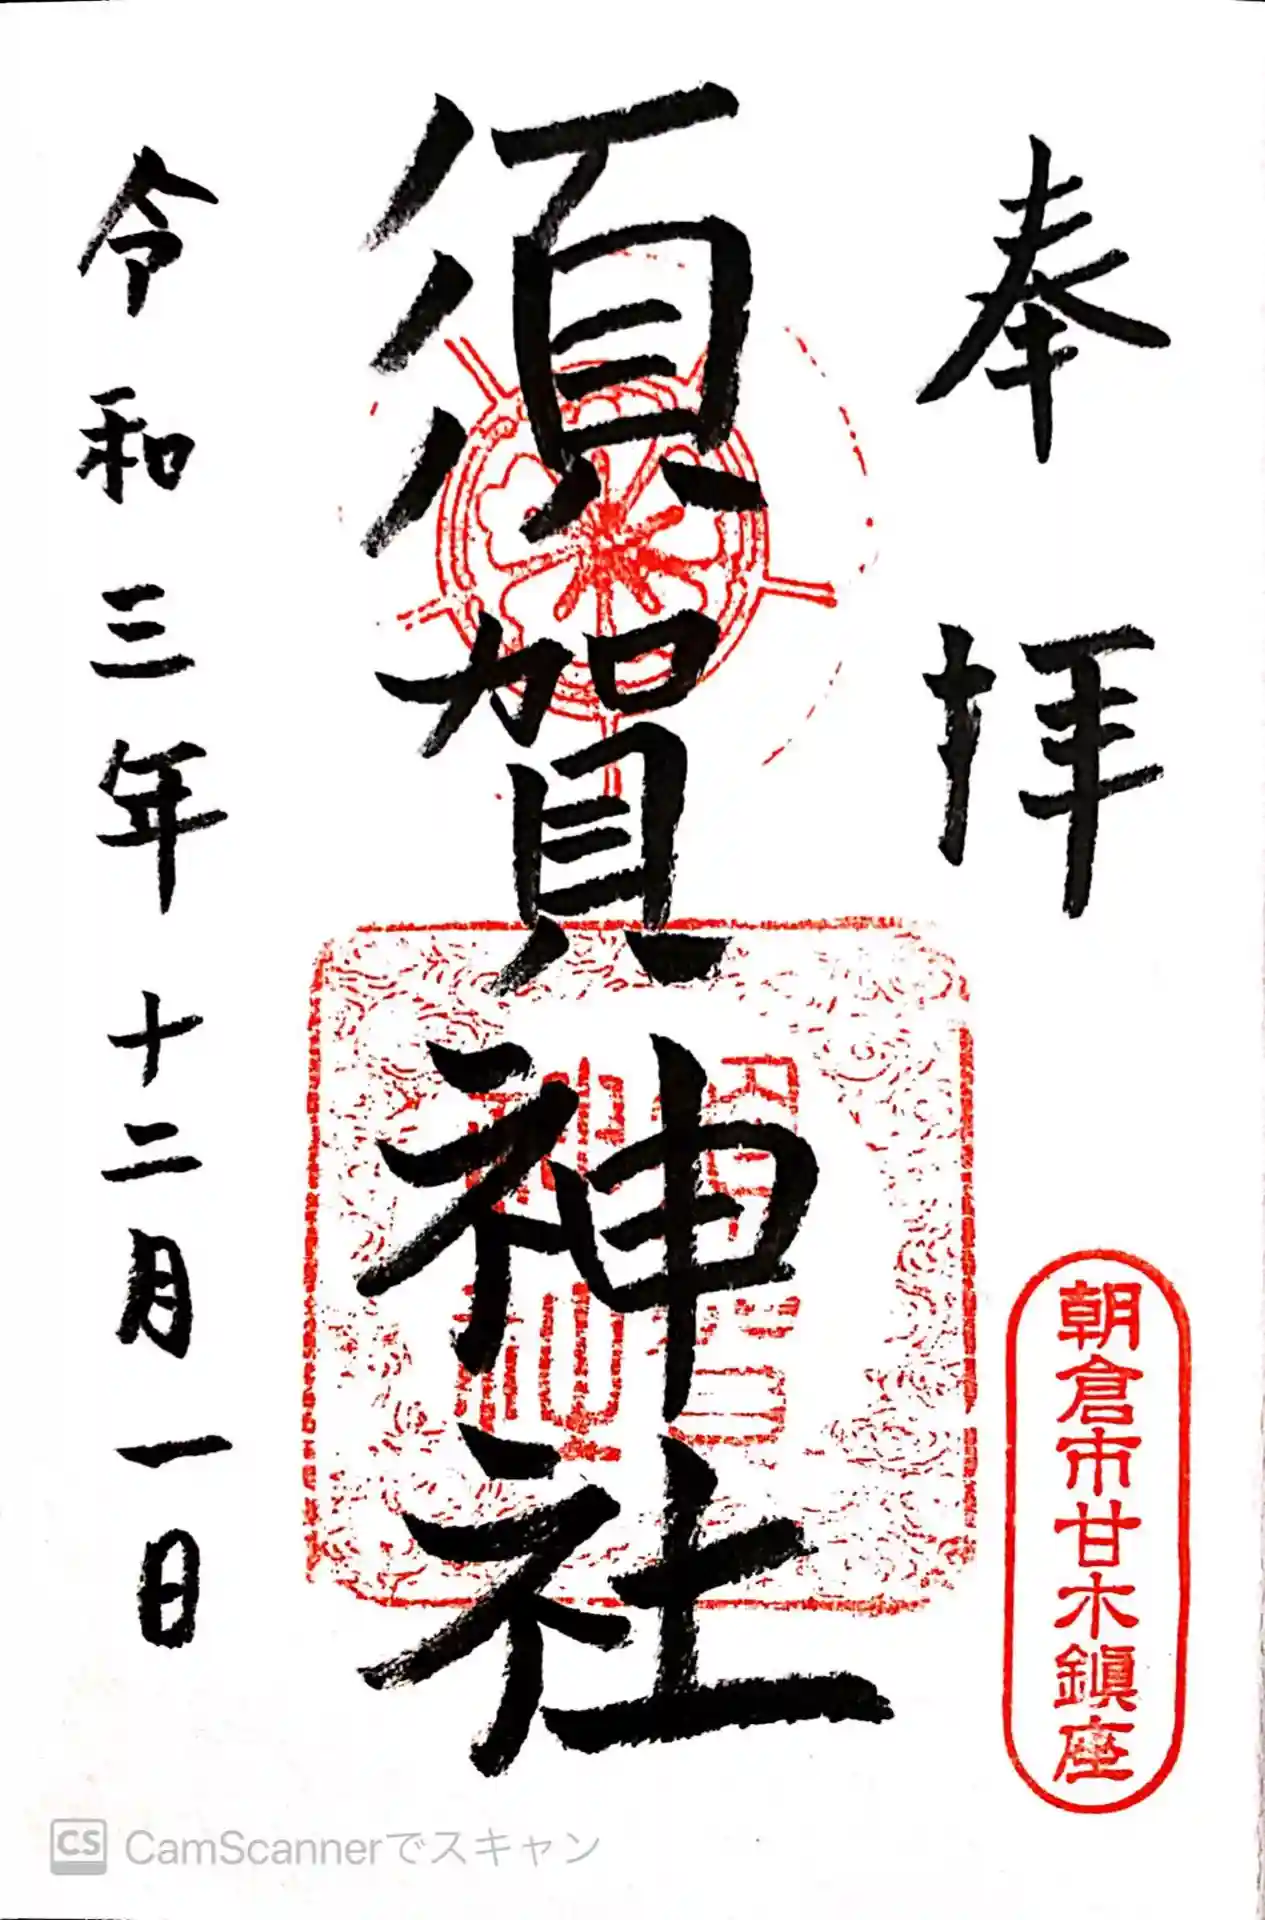 奉拝
朝倉市甘木鎮座
須賀神社
令和三年十二月一日
CS CamScannerでスキャン